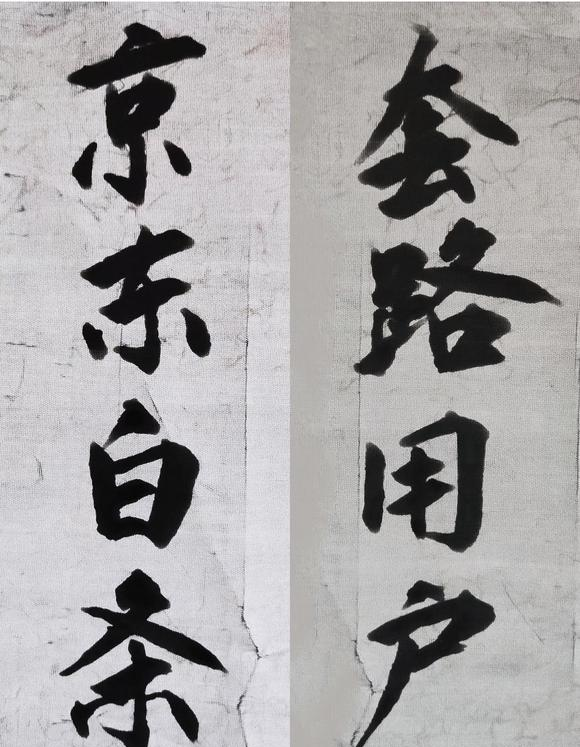 京东白条
套路用户